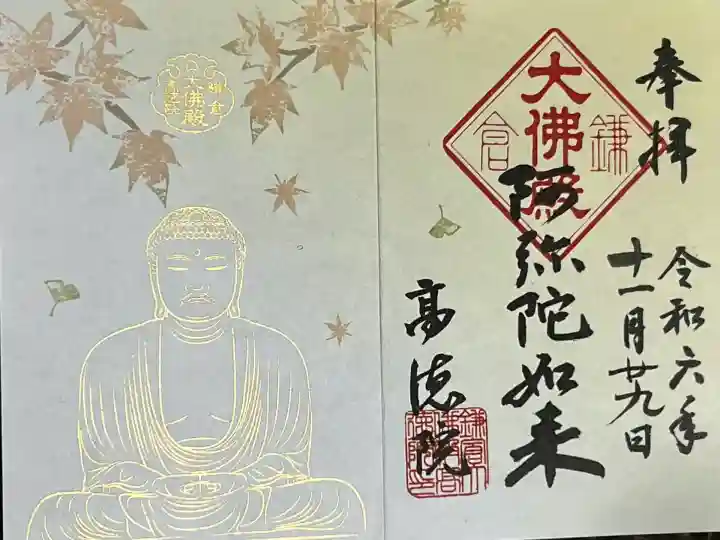 奉拝
令和六年
十一月廿九日
大佛殿
鎌倉
阿弥陀如来
高徳院
鎌倉
大佛殿
高徳院